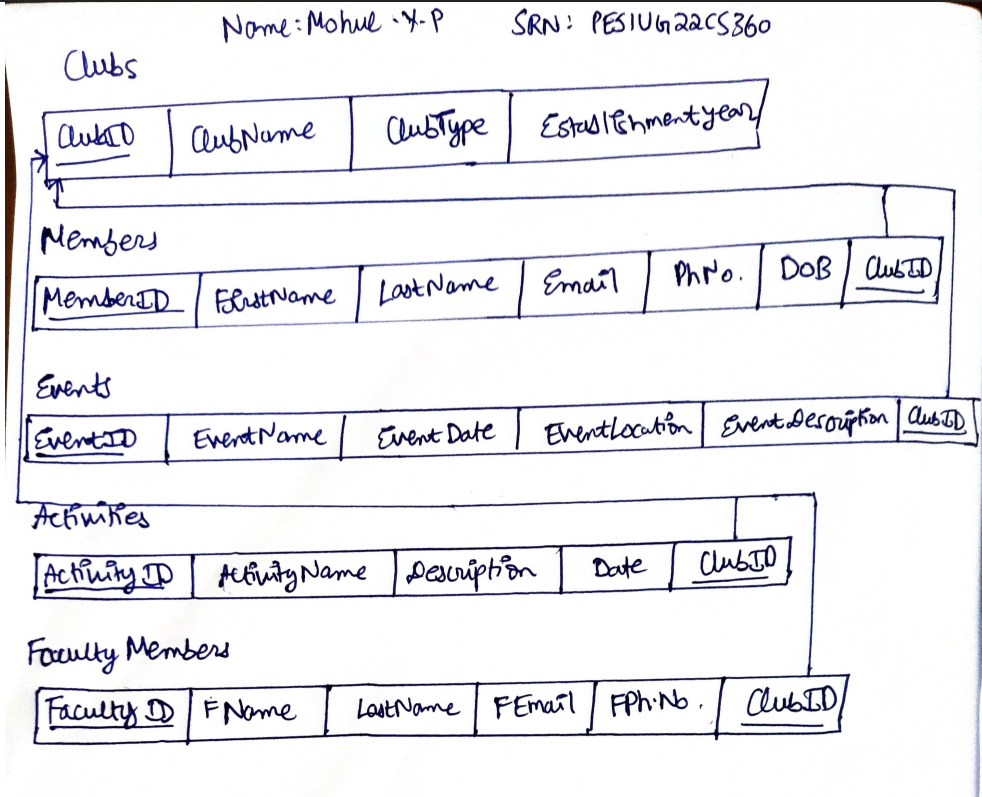 Name: Mohul .Y.P SRN: PES1UG22CS360
Clubs
ClubID ClubName ClubType Establishmentyear
Members
MemberID FirstName LastName Email PhNo. DOB ClubID
Events
EventID EventName EventDate EventLocation EventDescription ClubID
Activities
Activity ID ActivityName Description Date ClubID
Faculty Members
Faculty ID FName LastName FEmail FPh.No. ClubID